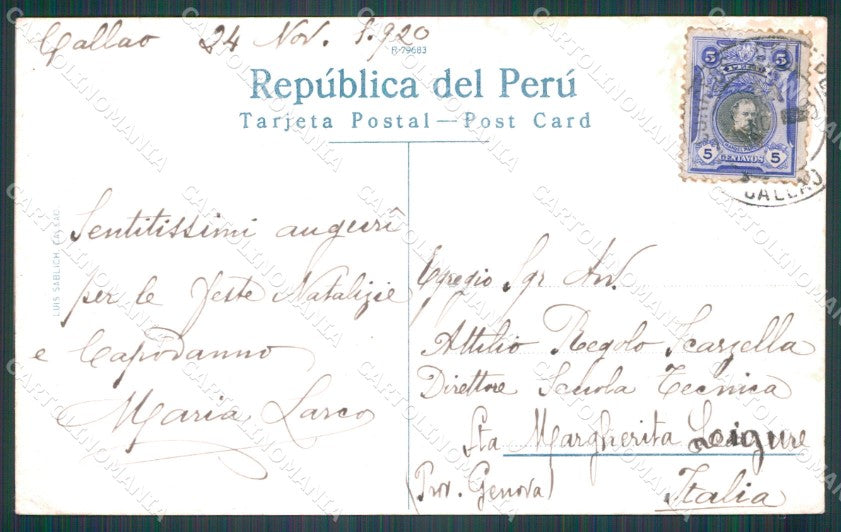 Callao 24 Nov. 1.920
R-79683
República del Perú
Tarjeta Postal—Post Card
5 5
PERU
5 CENTAVOS 5
CALLAO
LUIS SABLICH, CALLAO
Sentitissimi auguri
per le feste Natalizie
e Capodanno
Maria Larco
Egregio Sgr Avv.
Attilio Regolo Scarsella
Direttore Scuola Tecnica
Sta Margherita Ligure
(Prov. Genova)
Italia
CARTOLINOMANIA